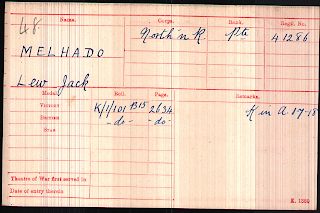 Name. Corps. Rank. Regtl. No.
48
MELHADO North'n R. Pte 41286
Lew Jack
Medal. Roll. Page. Remarks.
Victory K/1/101 B15 2634 K in A 17-18
British -do- -do-
Star
Theatre of War first served in
Date of entry therein
K. 1380